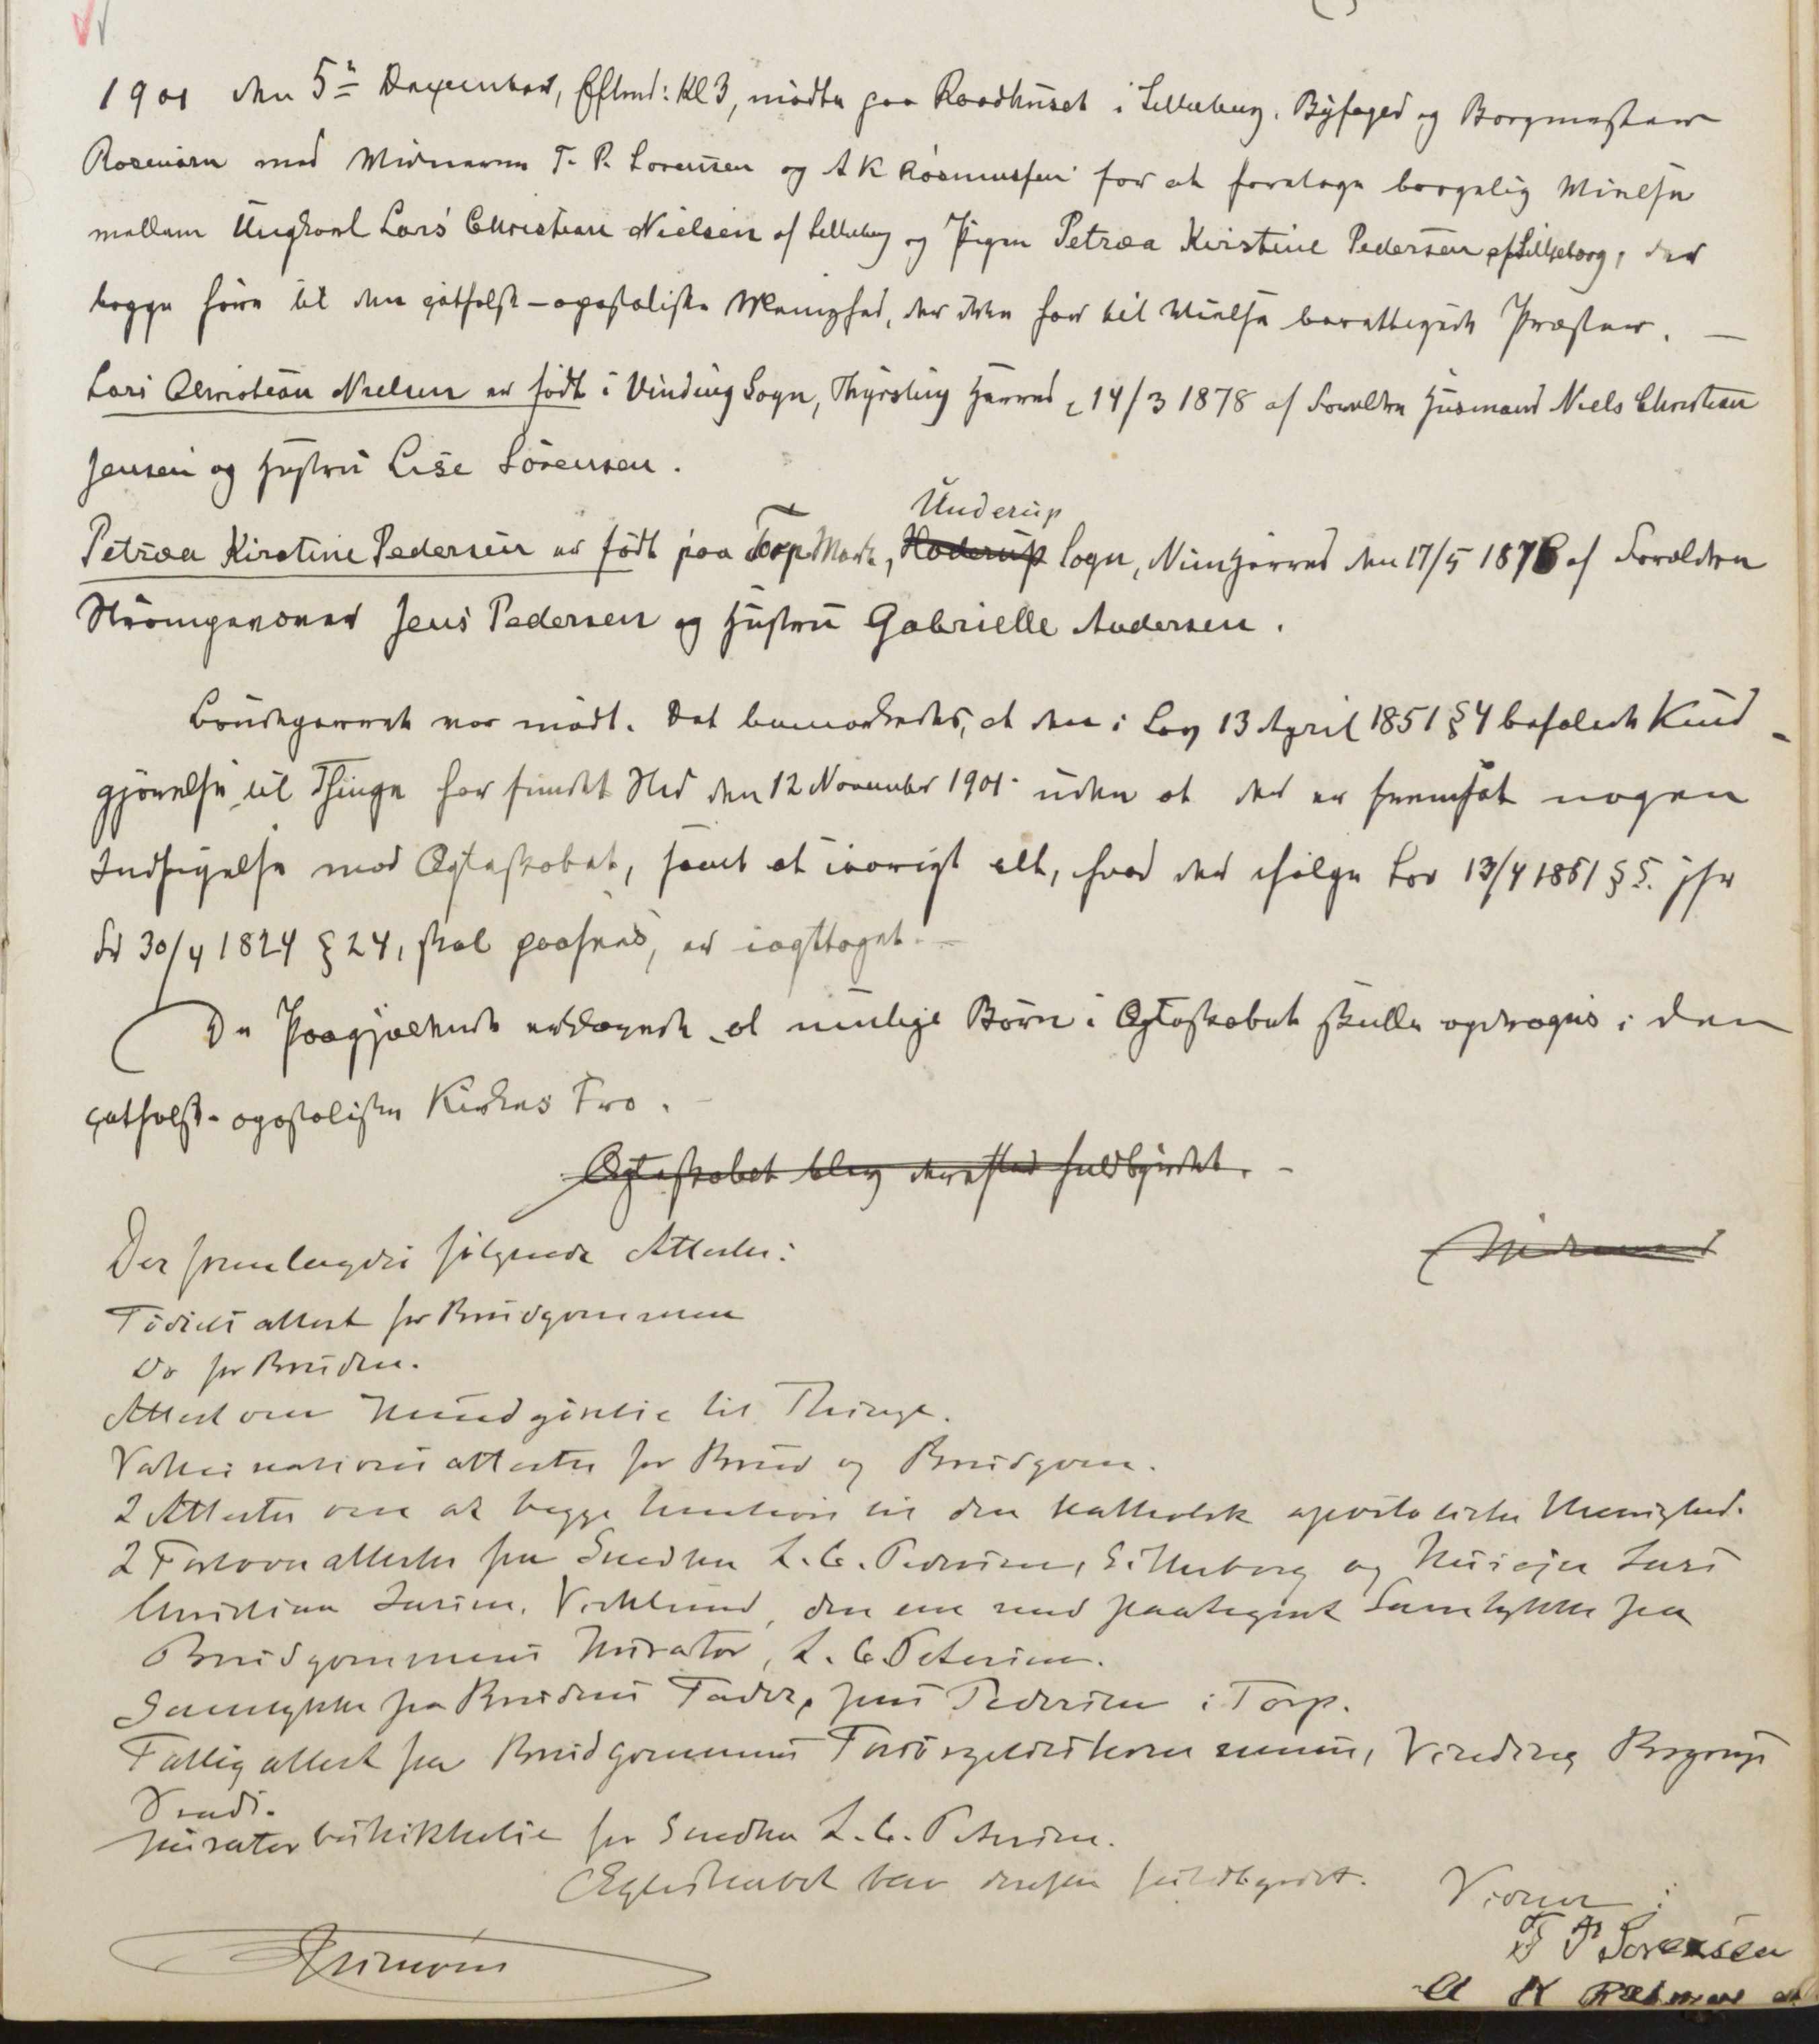 1901 den 5te December, Eftmd: Kl 3, mødte paa Raadhuset i Silkeborg, Byfoged og Borgmester
Rosenørn med Vidnerne T. P. Sørensen og A K Rasmussen for at foretage borgelig Vielse
mellem Ungkarl Lars Christian Nielsen af Silkeborg og Pigen Petræa Kirstine Pedersen af Silkeborg, der
begge høre til den catholsk-apostoliske Menighed, der ikke har til Vielse berettigede Præster. —
Lars Christian Nielsen er født i Vinding Sogn, Thyrsting Herred, 14/3 1878 af Forældre Husmand Niels Christian
Jensen og Hustru Lise Sørensen.
Underup
Petræa Kirstine Pedersen er født paa Torp Mark, Hoderup Sogn, Nim Herred den 17/5 1876 af Forældrene
Jens Pedersen og Hustru Gabrielle Andersen.
Brudeparret var mødt. Det bemærkedes, at den i Lov 13 April 1851 § 4 befalede Kund-
gjørelse til Thinge har fundet Sted den 12 November 1901 uden at der er fremsat nogen
Indsigelse mod Ægteskabet, samt at iøvrigt alt, hvad der ifølge Lov 13/4 1851 § 5. jfr
Fr 30/4 1824 § 24, skal paases, er iagttaget. —
De Paagjældende erklærede at mulige Børn i Ægteskabet skulle opdrages i den
catholsk-apostoliske Kirkes Tro. —
Ægteskabet blev derefter fuldbyrdet. —
Der fremlagdes følgende Attester:
Fødselsattest for Brudgommen
Do for Bruden.
Attest om Kundgørelse til Thinge.
Vakcinationsattester for Brud og Brudgom.
2 Attester om at begge henhøre til den katholsk apostoliske Menighed.
2 Forloverattester fra Snedker L. C. Petersen, Silkeborg og Husejer Lars
Christian Larsen, Virklund, den ene med paategnet Samtykke fra
Brudgommens Kurator, L. C. Petersen.
Samtykke fra Brudens Fader, Jens Pedersen i Torp.
Fattigattest fra Brudgommens Forsørgelseskommune, Vinding Bryrup
Vrads.
Kuratorbeskikkelse for Snedker L. C. Petersen.
Ægteskabet blev derefter fuldbyrdet.
Vidner:
Rosenørn
T P Sørensen
A K Rasmussen